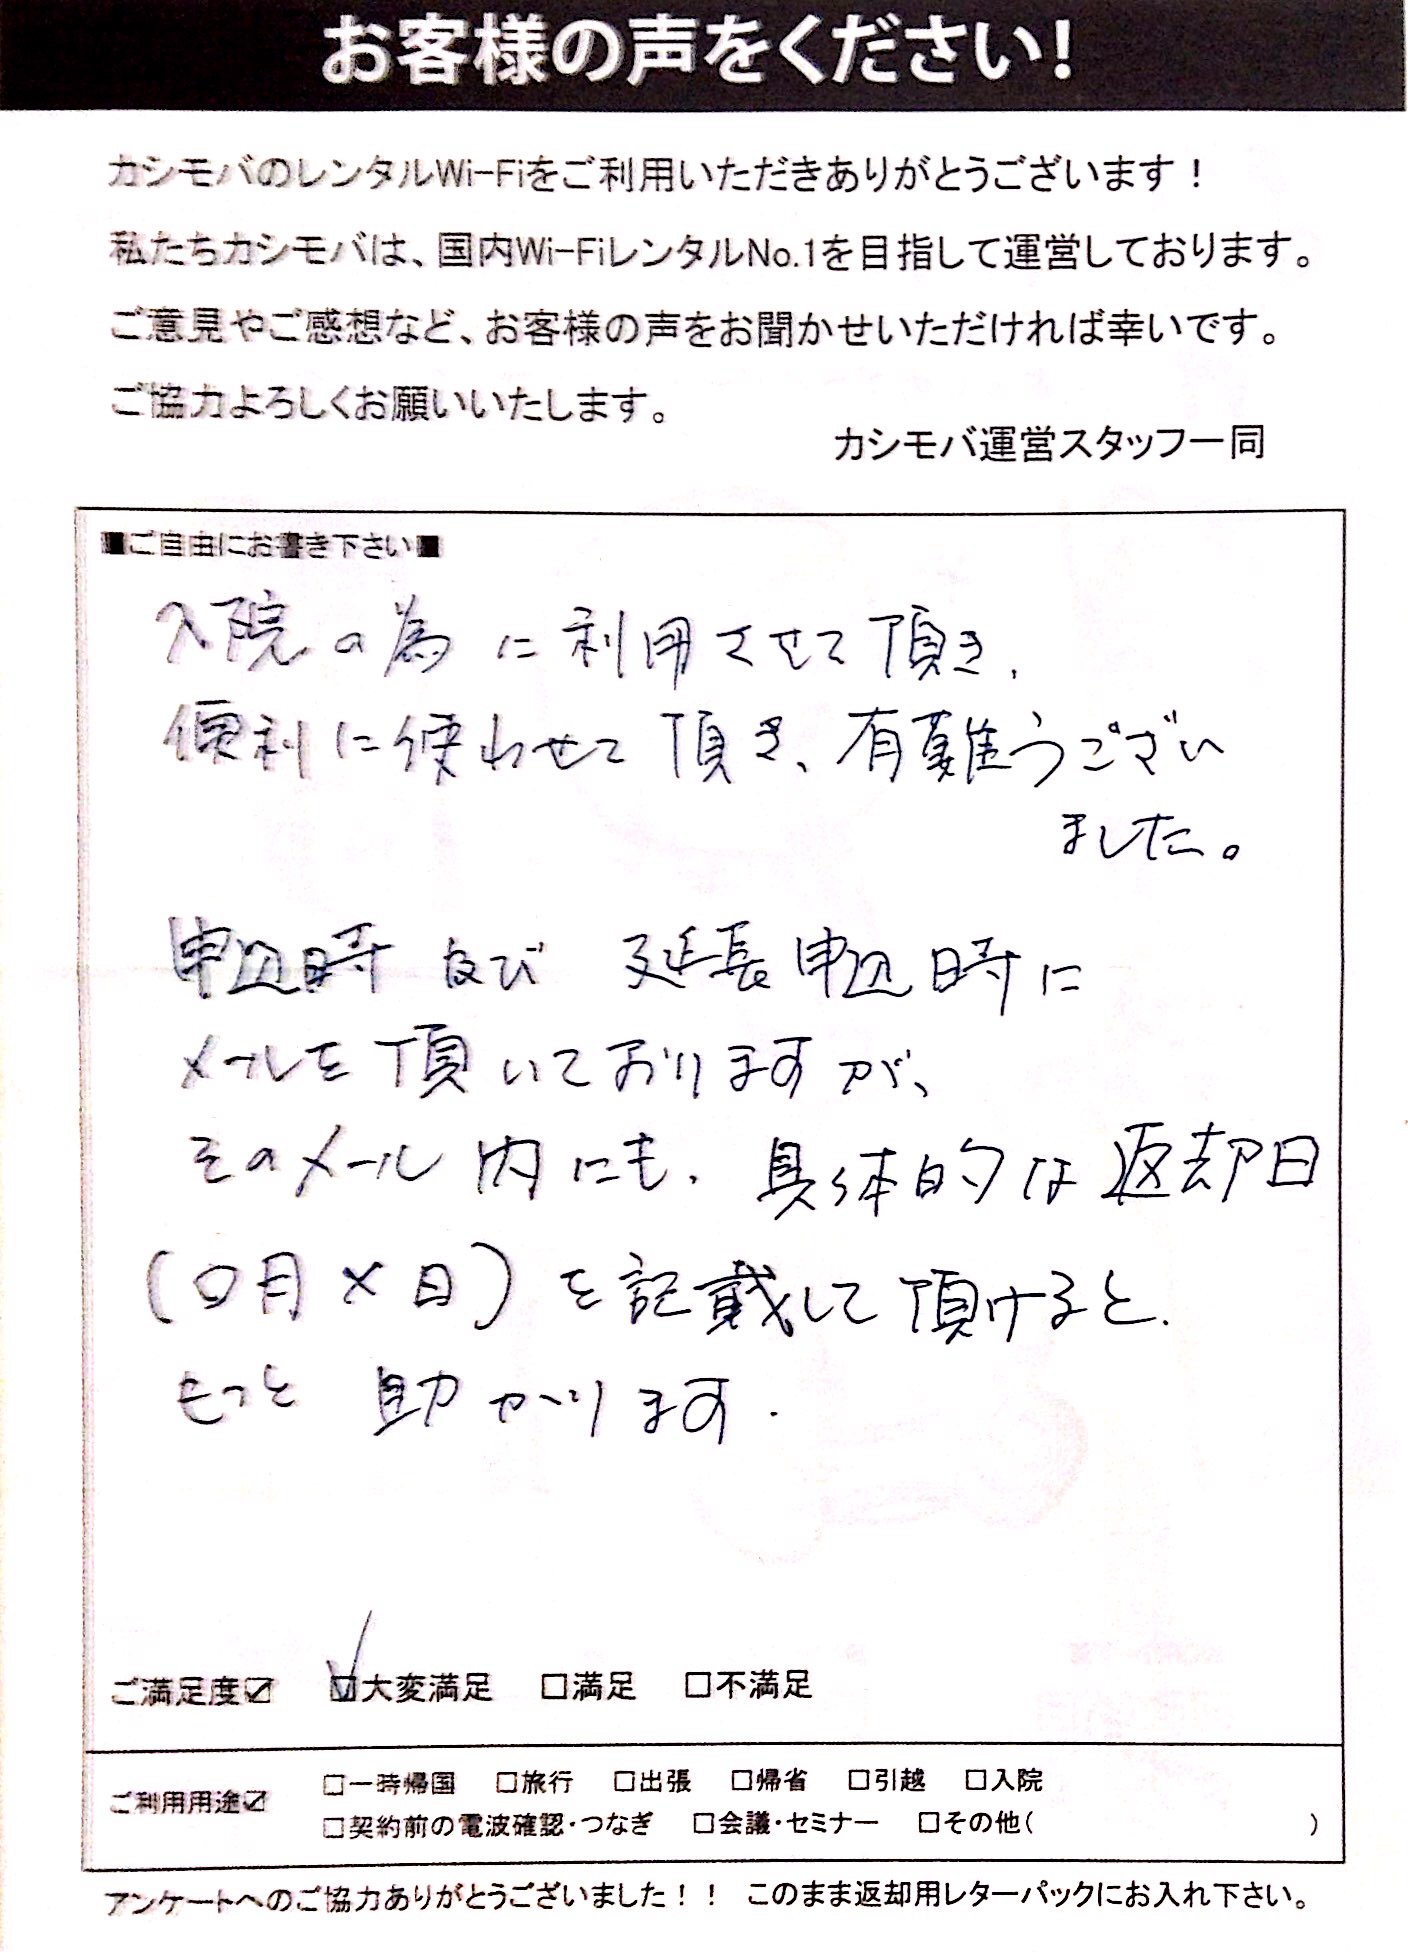 お客様の声をください!
カシモバのレンタルWi-Fiをご利用いただきありがとうございます！
私たちカシモバは、国内Wi-FiレンタルNo.1を目指して運営しております。
ご意見やご感想など、お客様の声をお聞かせいただければ幸いです。
ご協力よろしくお願いいたします。
カシモバ運営スタッフ一同
■ご自由にお書き下さい■
入院の為に利用させて頂き、
便利に使わせて頂き、有難うござい
ました。
申込時及び延長申込時に
メールを頂いておりますが、
そのメール内にも、具体的な返却日
(○月×日)を記載して頂けると、
もっと助かります.
ご満足度☑ ☑大変満足 □満足 □不満足
ご利用用途☑ □一時帰国 □旅行 □出張 □帰省 □引越 □入院
□契約前の電波確認・つなぎ □会議・セミナー □その他( )
アンケートへのご協力ありがとうございました！！ このまま返却用レターパックにお入れ下さい。